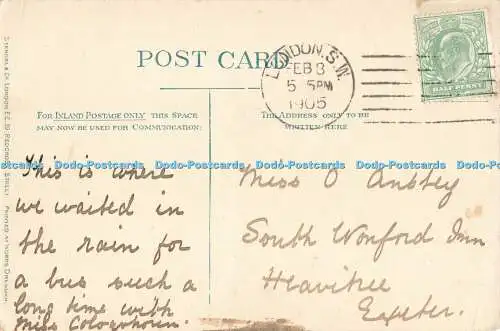 POST CARD
LONDON. S.W.
FEB 3
5 5PM
1905
HALF PENNY
FOR INLAND POSTAGE ONLY THIS SPACE
MAY NOW BE USED FOR COMMUNICATION:
THE ADDRESS ONLY TO BE
WRITTEN HERE
This is where
we waited in
the rain for
a bus such a
long time with
Miss
Miss O Anstey
South Wonford Inn
Heavitree
Exeter.
Dodo-Postcards Dodo-Postcards Dodo-Postcards Dodo-Postcards Dodo-Postcards